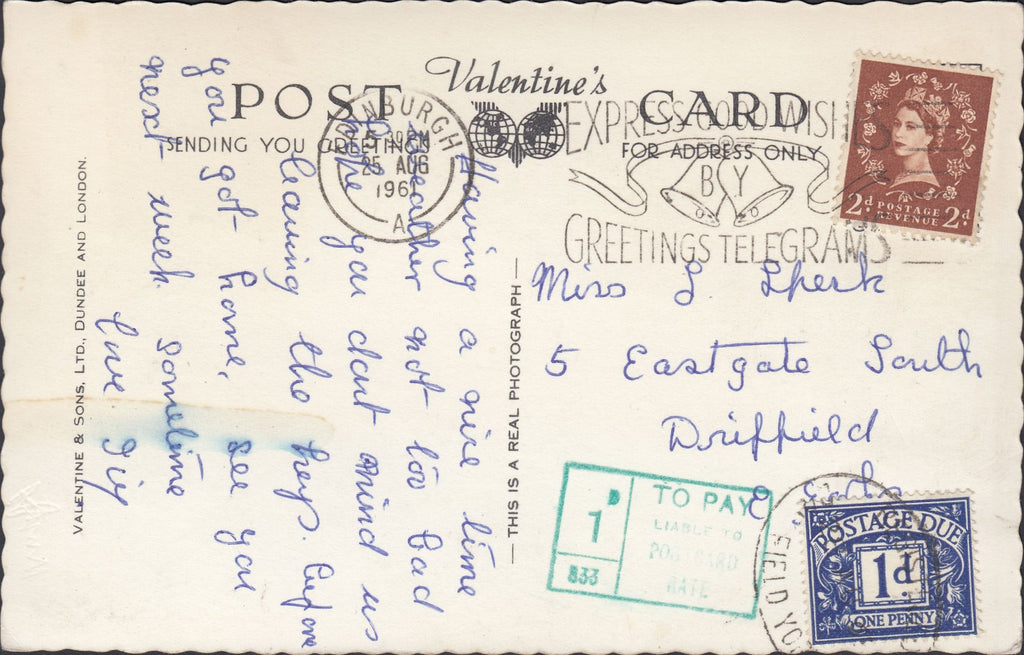 Valentine's
POST CARD
SENDING YOU GREETINGS
FOR ADDRESS ONLY
VALENTINE & SONS, LTD., DUNDEE AND LONDON.
THIS IS A REAL PHOTOGRAPH
EDINBURGH
30 PM
25 AUG
1961
A
EXPRESS GOOD WISHES
BY
GREETINGS TELEGRAMS
2d POSTAGE REVENUE 2d
Having a nice time
weather not too bad
hope you dont mind us
leaving the keys. before
you got home, see you
next week sometime
love
Miss L.
5 Eastgate South
Driffield
E
1D
TO PAY
LIABLE TO
POSTCARD
RATE
833
POSTAGE DUE
1d
ONE PENNY
FIELD YO